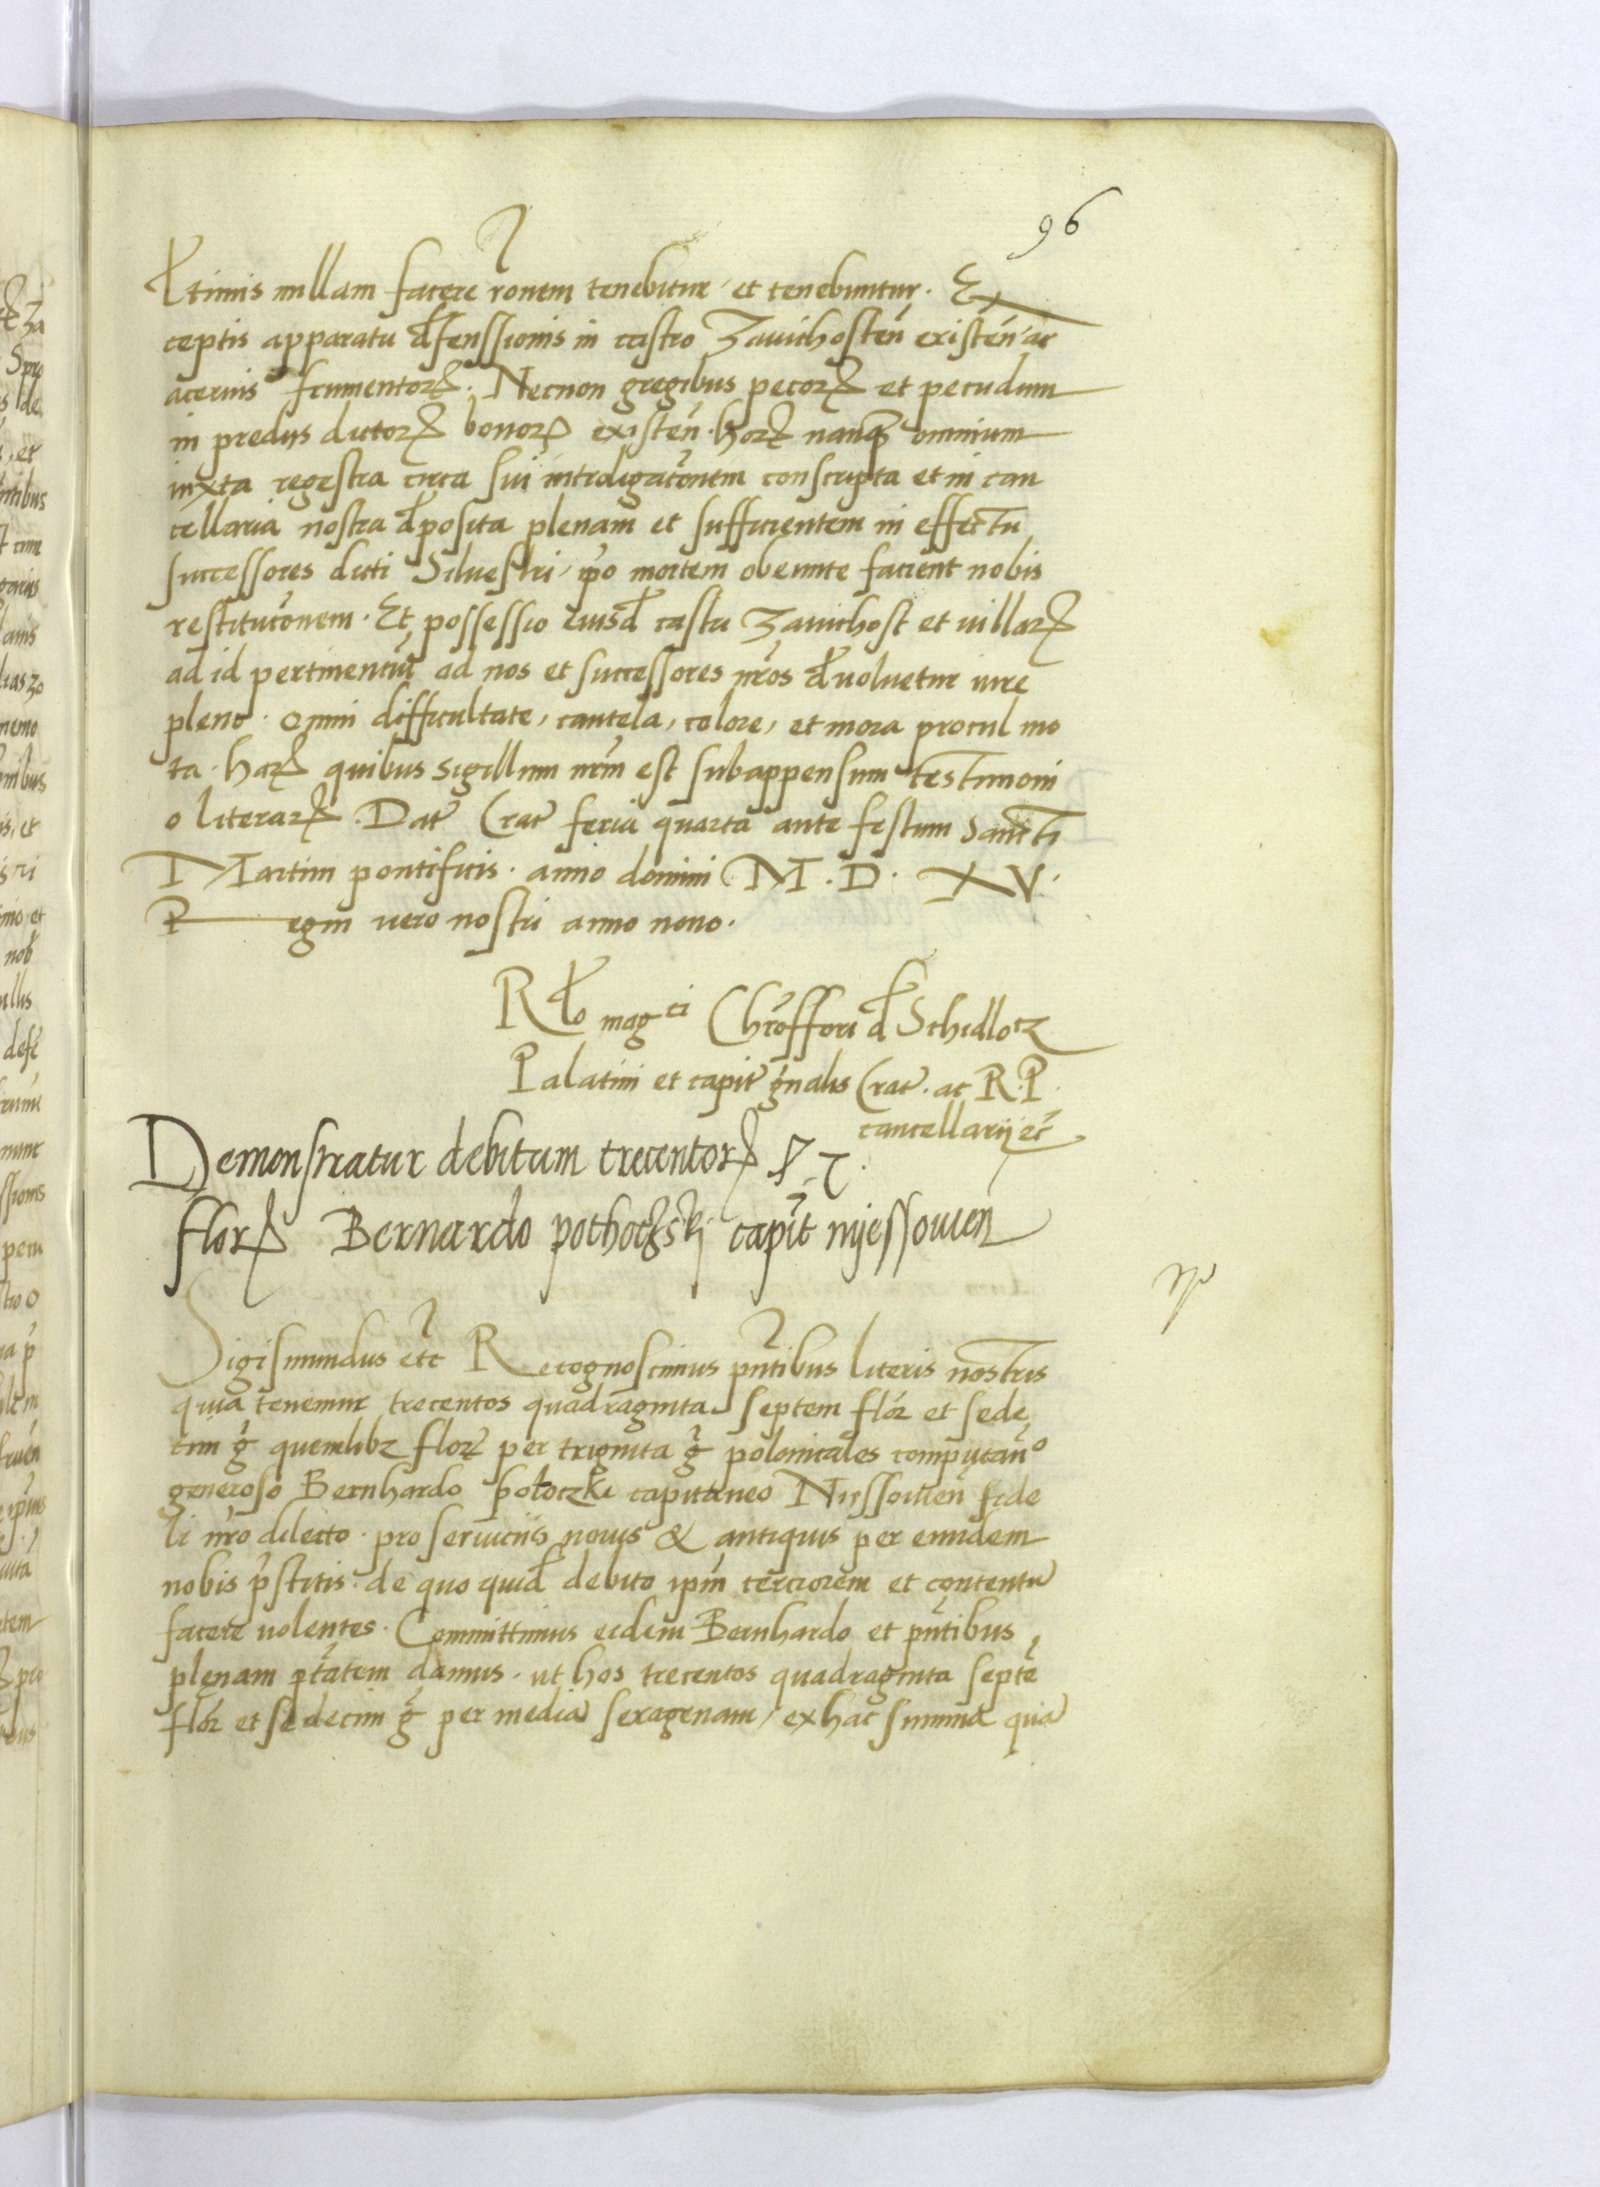 96
ltimis nullam facere ronem tenebitur et tenebuntur. Ex
ceptis apparatu defenssionis in castro Zavichosten existen ac
acervis frumentorꝝ. Necnon gregibus pecorꝝ et pecudum
in predijs dictorꝝ bonorꝝ existen. horꝝ nanqꝫ omnium
iuxta regestra circa sui intrdigatonem conscripta et in can
cellaria nostra deposita plenam et sufficientem in effectu
successores dicti Siluestri, ipo mortem obeunte facient nobis
restitutonem. Et possessio eiusd castri Zavichost et villarꝝ
ad id pertinentiu ad nos et successores nros devoluetur iure
pleno. omni difficultate, cautela, colore, et mora procul mo
ta. harꝝ quibus sigillum nrm est subappensum testimoni
o literarꝝ. Dat Crac feria quarta ante festum Sancti
Martini pontificis. anno domini M. D. XV.
Regni vero nostri anno nono.
Rlo mag ci Chroffori d Schidlocz
Palatini et capit gnalis Crac. ac R. P.
cancellarij etc
Demonstratur debitum trecentorꝝ
florꝝ Bernardo pothoczski capit nyessovien
Sigismundus etc Recognoscimus pntibus literis nostris
quia tenemur trecentos quadraginta septem flor et sede
cim g quemlibz florꝝ per triginta g polonicales computan o
generoso Bernhardo potoczki capitaneo Nyessovien fide
li nro dilecto. pro seruicijs nouis & antiquis per eundem
nobis pstitis. de quo quid debito ipm cerciorem et contentu
facere uolentes. Committimus eidem Bernhardo et pntibus
plenam ptatem damus. ut hos trecentos quadraginta septe
flor et sedecim g per media sexagenam, ex hac summa qua